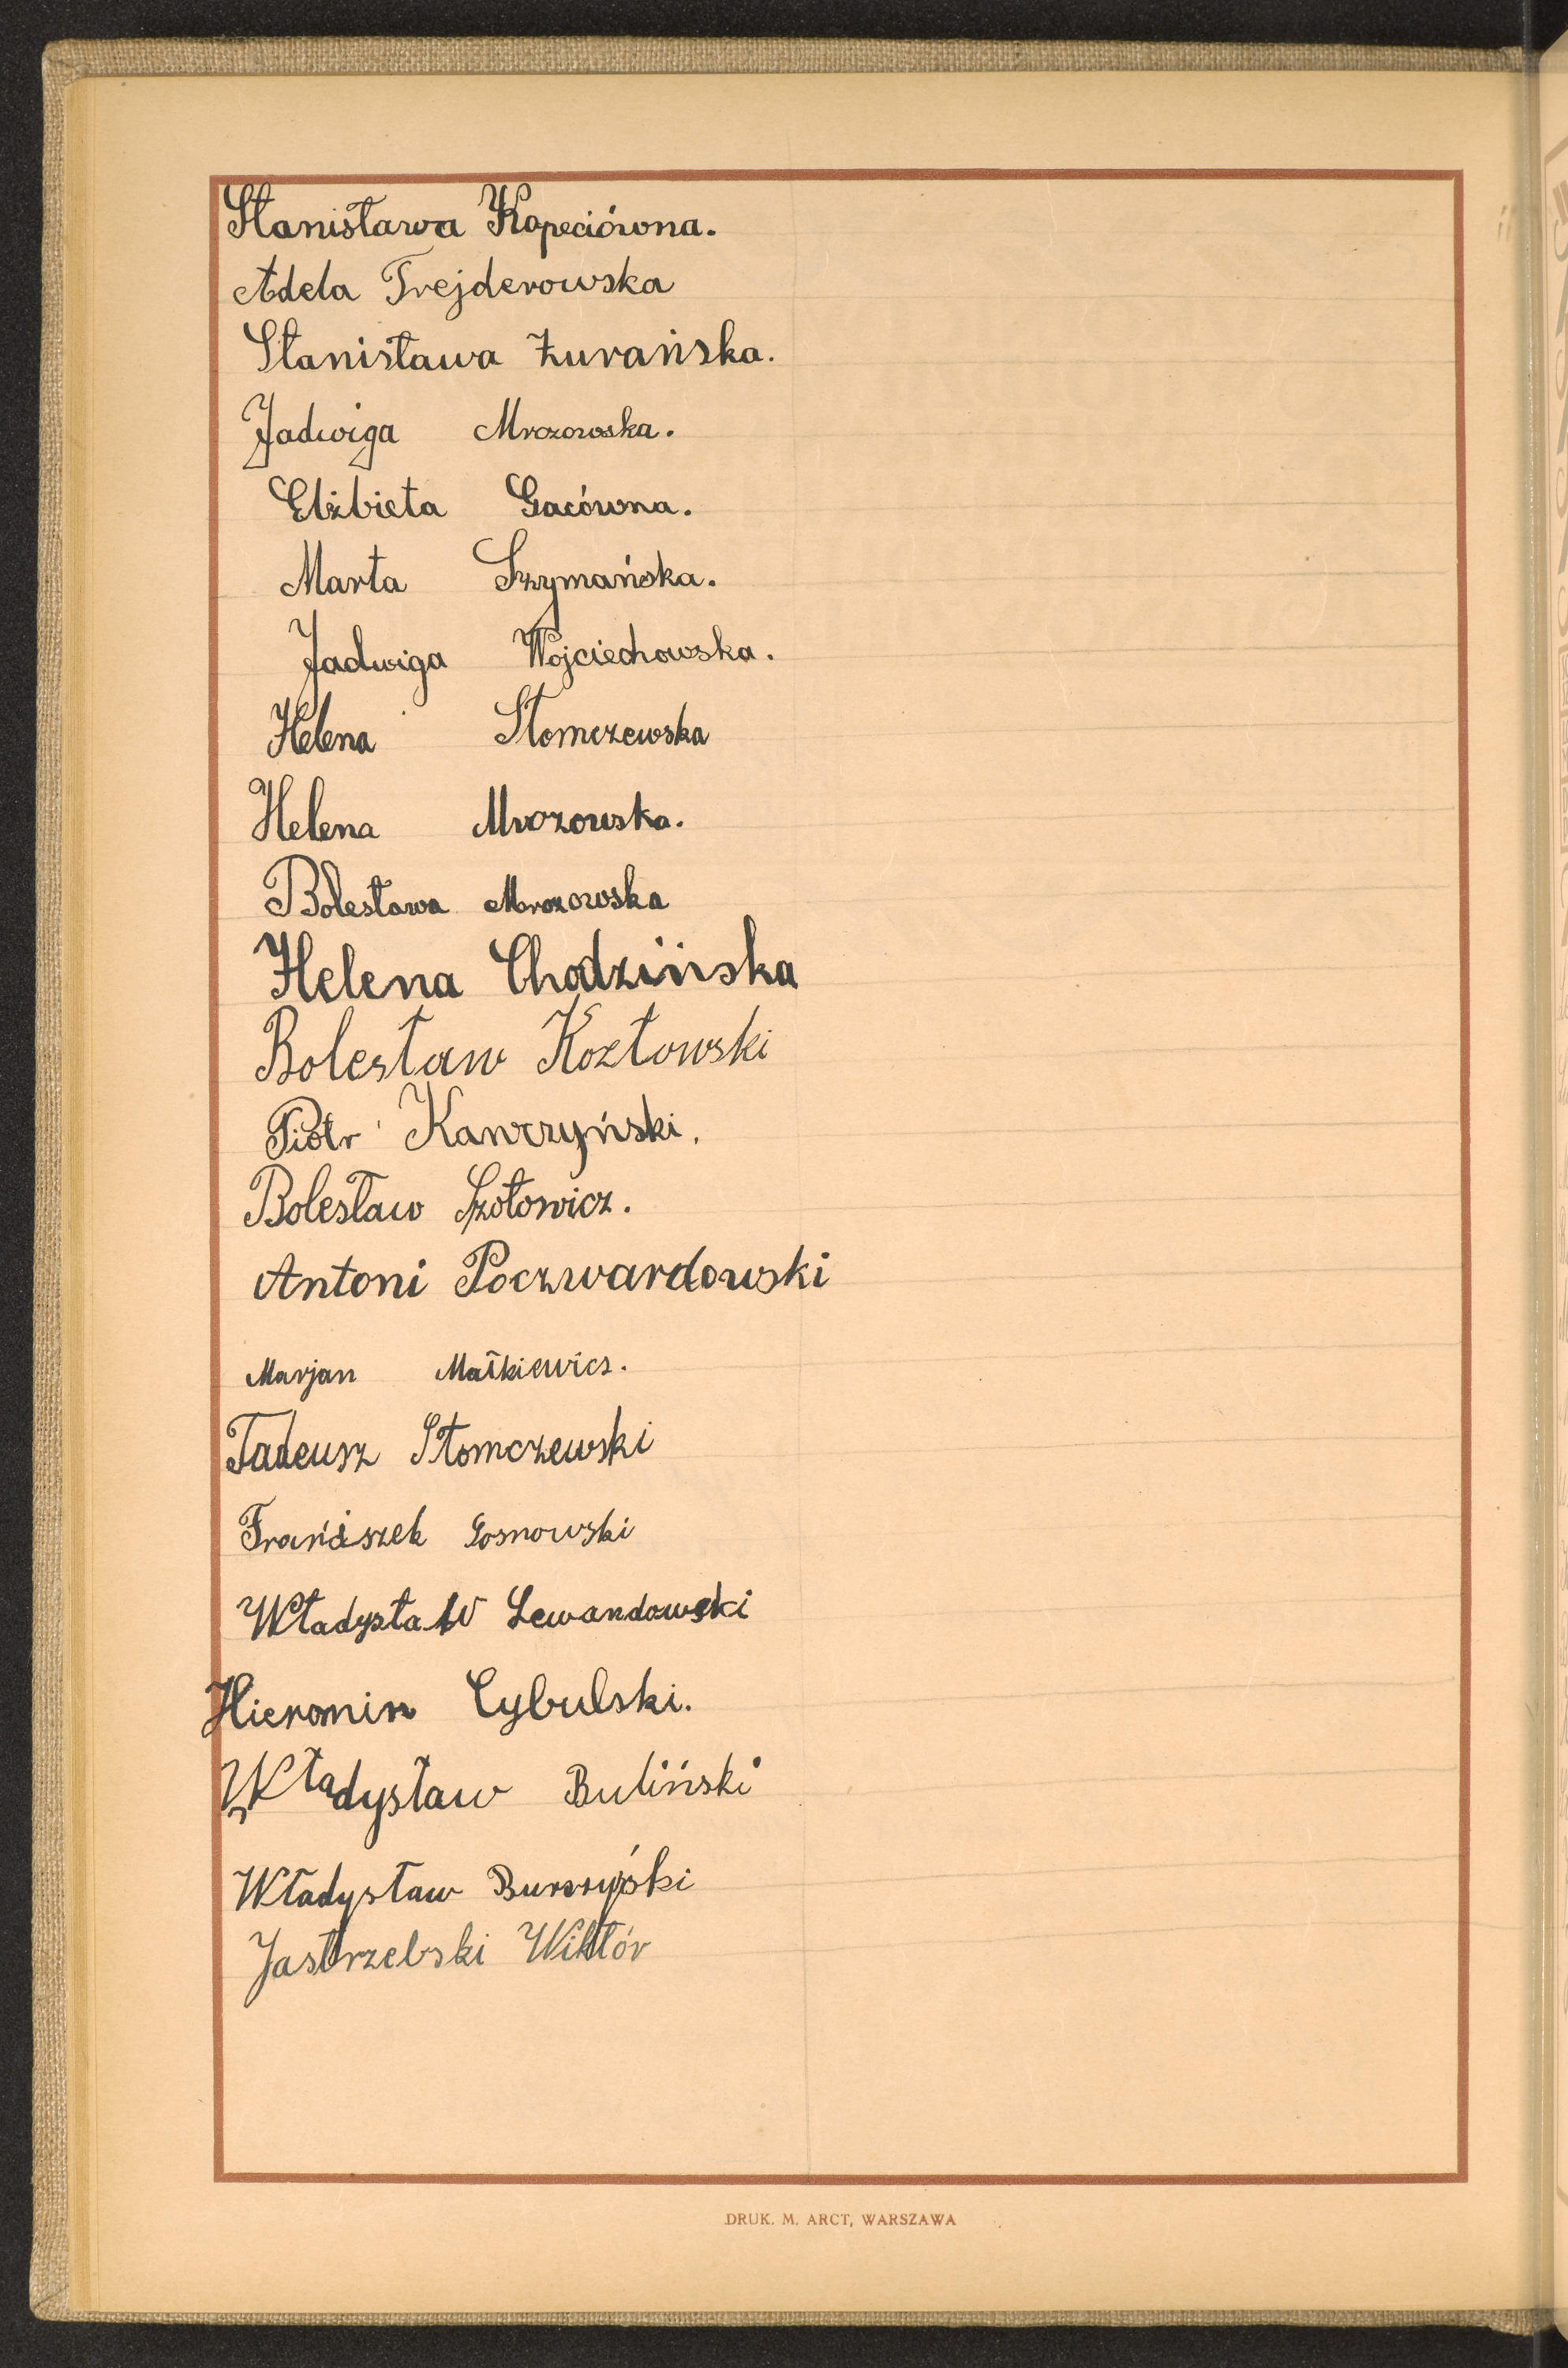 Stanisława Kopeciówna.
Adela Trejderowska
Stanisława Żurańska.
Jadwiga Mrozowska.
Elżbieta Gacówna.
Marta Szymańska.
Jadwiga Wojciechowska.
Helena Słomczewska
Helena Mrozowska.
Bolesława Mrozowska
Helena Chodzińska
Bolesław Kozłowski
Piotr Kawczyński.
Bolesław Szołowicz.
Antoni Poczwardowski
Marjan Małkiewicz.
Tadeusz Słomczewski
Franciszek Sosnowski
Władysław Lewandowski
Hieronim Cybulski.
Władysław Buliński
Władysław Burczyński
Jastrzebski Wiktór
DRUK. M. ARCT, WARSZAWA